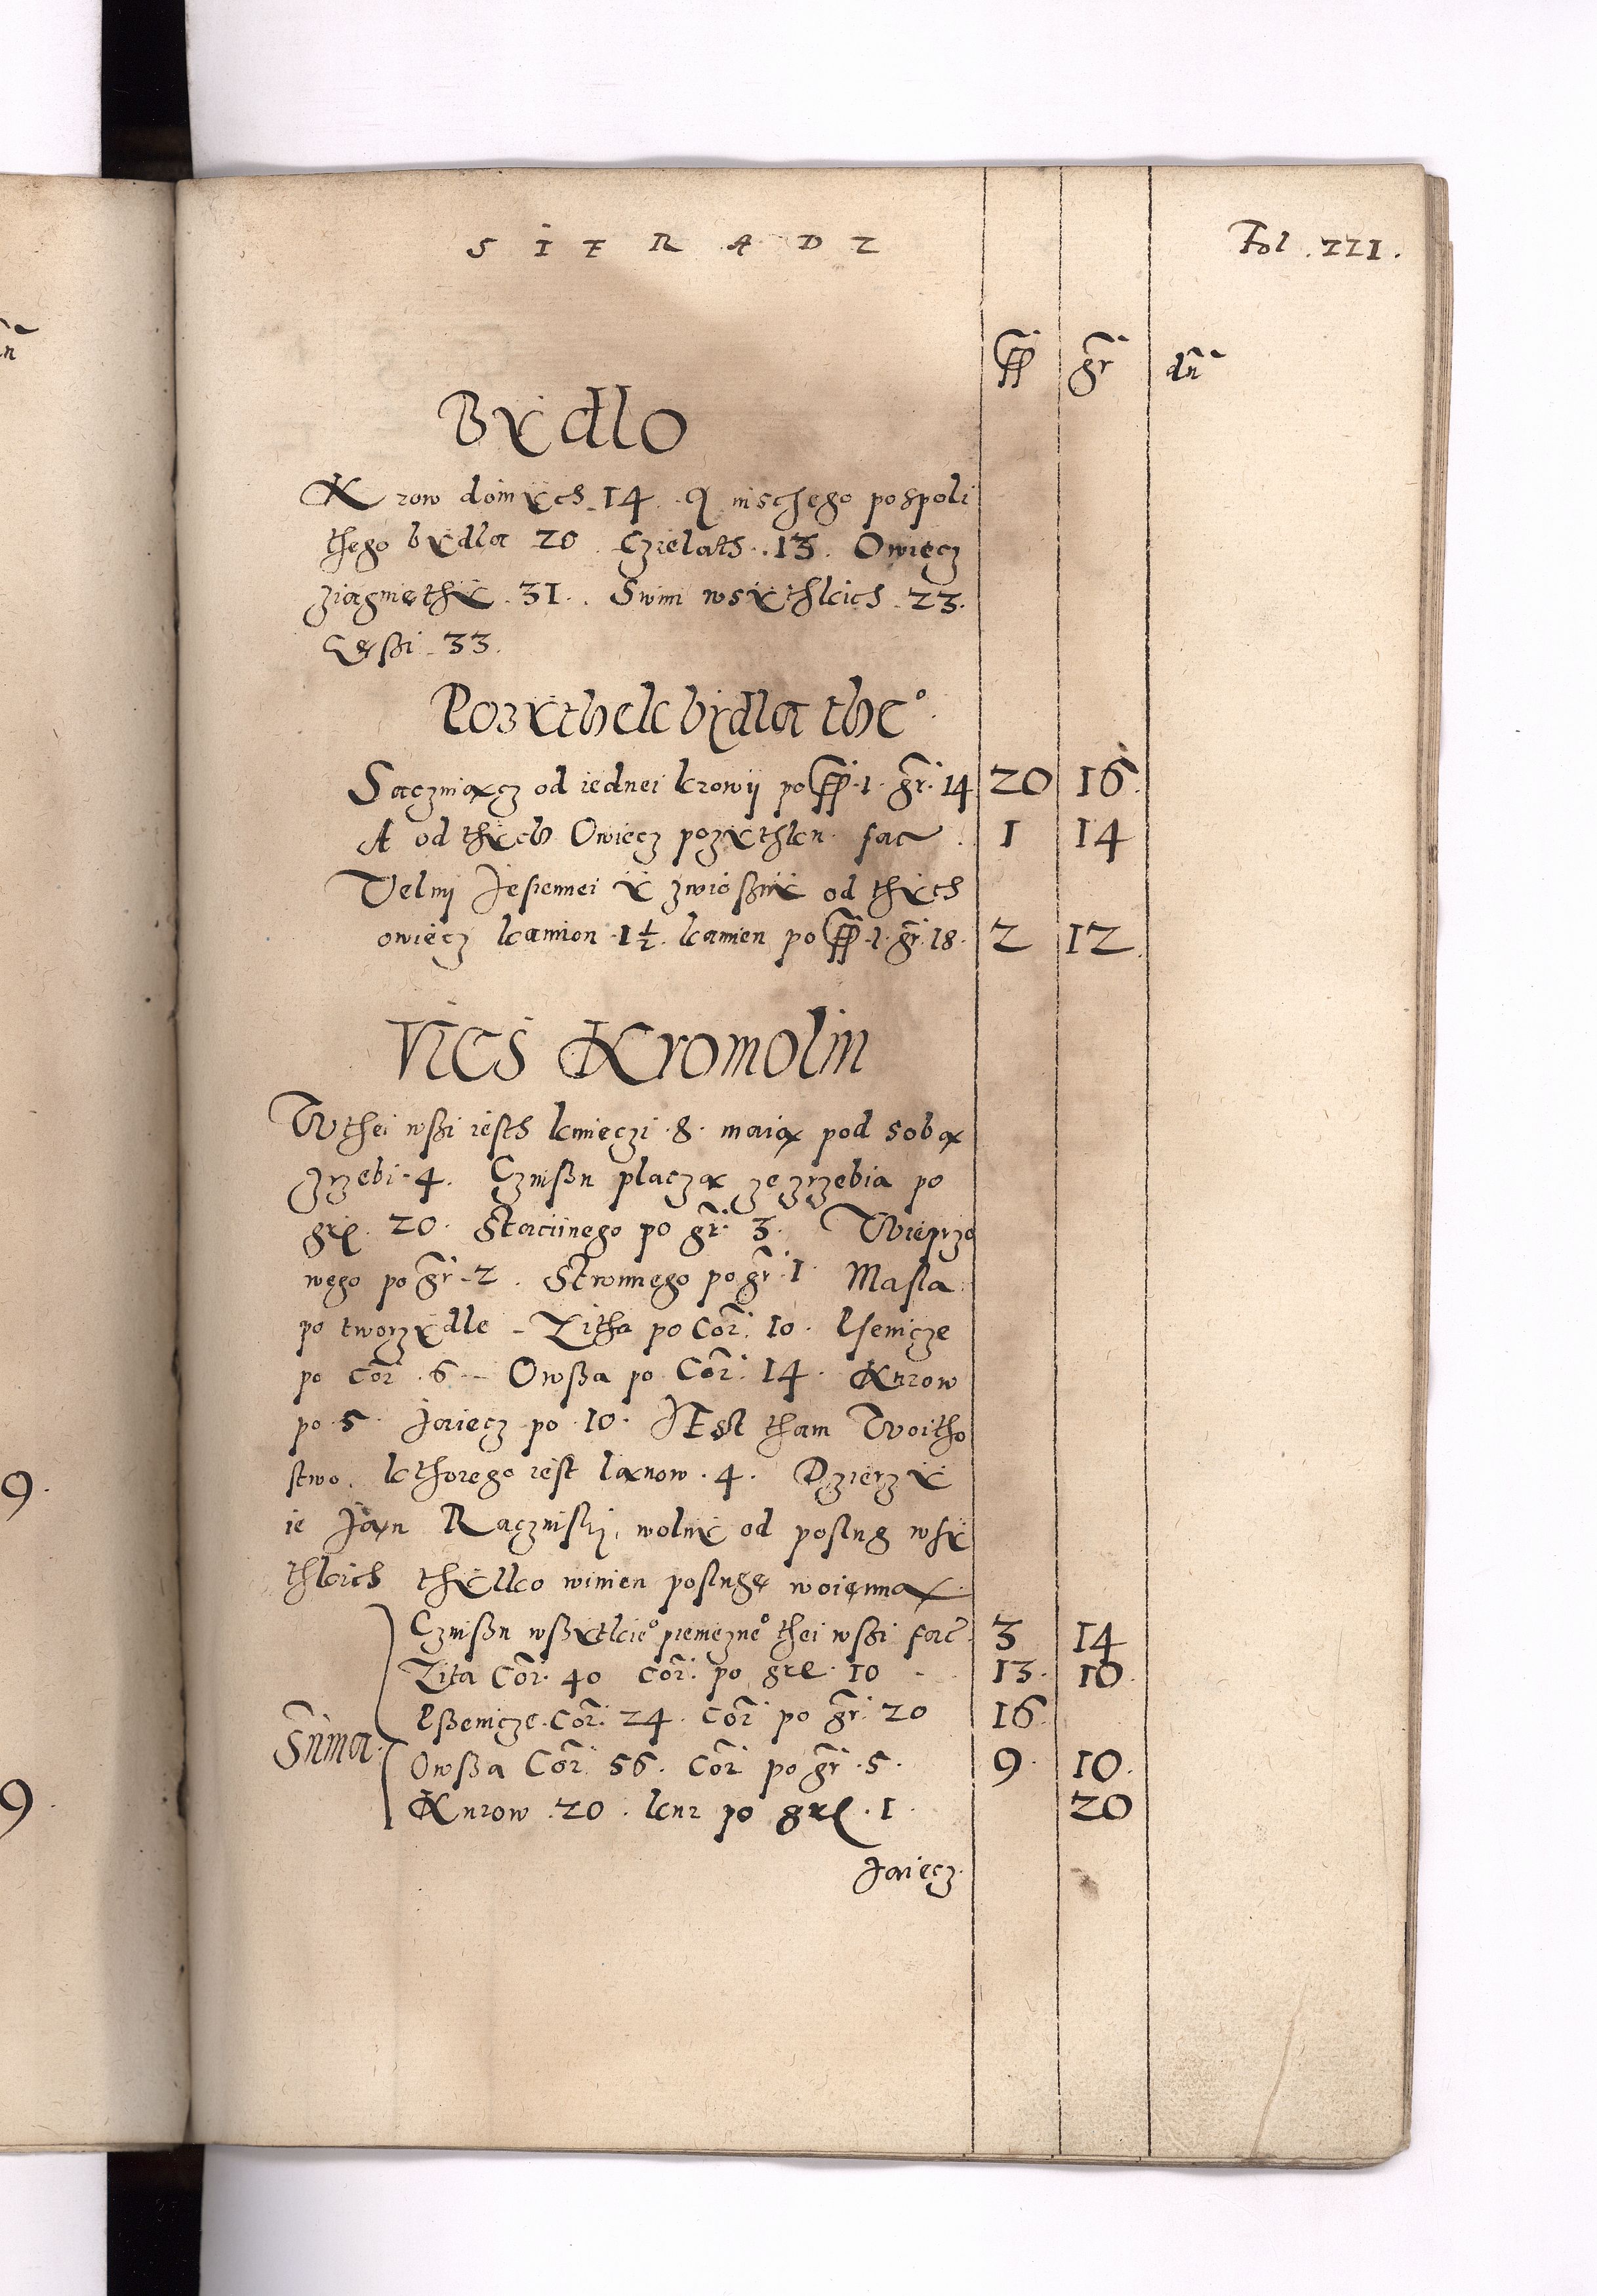 SIERADZ
Fol. 221.
ff gr dn
Bydlo
Krow doinych 14. A inschego pospoli
thego bydla 20. Czielath. 13. Owiecz
ziagnięthy. 31. Swini wsythkich. 23.
Gęßi. 33.
Pozythek bydla the°
Saczniącz od iednei krowy po ff. 1. gr. 14 20 16.
A od thych Owiecz pozythku fac. 1 14
Velny Jesiennei y zwioßny od thych
owiecz kamion 1 1/2. kamien po ff. 1. gr. 18. 2 12.
Vies Kromolin
W thei wßi iesth kmieczi. 8. maią pod sobą
zrzebi. 4. Czinßu placzą ze zrzebia po
gr. 20. Staciinego po gr. 3. Wieprzo
wego po gr. 2. Stronnego po gr. 1 Masla
po tworzydle - Zitha po Cor. 10. Psenicze
po Cor. 6 - Owßa po Cor. 14. Kurow
po 5. Jaiecz po 10. JEst tham Woitho
stwo, kthorego iest lanow. 4. Dzierzy
ie Jan Raczinski, wolny od poslug wsy
thkich thylko winien poslugę woienną.
Czinßu wßytkie° pieniężne° thei wßi fac. 3 14
Zita Cor. 40 Cor. po gr. 10 - 13. 10.
Pßenicze. Cor. 24. Cor. po gr. 20 16.
Suma.
Owßa Cor. 56. Cor. po gr. 5. 9. 10.
Kurow. 20. kur po gr. 1. 20
Jaiecz.
9.
9.